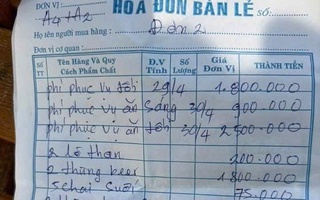 ĐƠN VỊ: HÓA ĐƠN BÁN LẺ SỐ:
A4+A2
Họ tên người mua hàng: Đơn 2
Đơn vị cơ quan
Số TT Tên Hàng Và Quy Cách Phẩm Chất Đ.V Tính Số Lượng Giá Đơn Vị THÀNH TIỀN
phí phục vụ tối 29/4 1.800.000
phí phục vụ ăn sáng 30/4 900.000
phí phục vụ ăn tối 30/4 2500.000
2 lô than 200.000
2 thùng beer 1800.000
5 chai suối 75.000